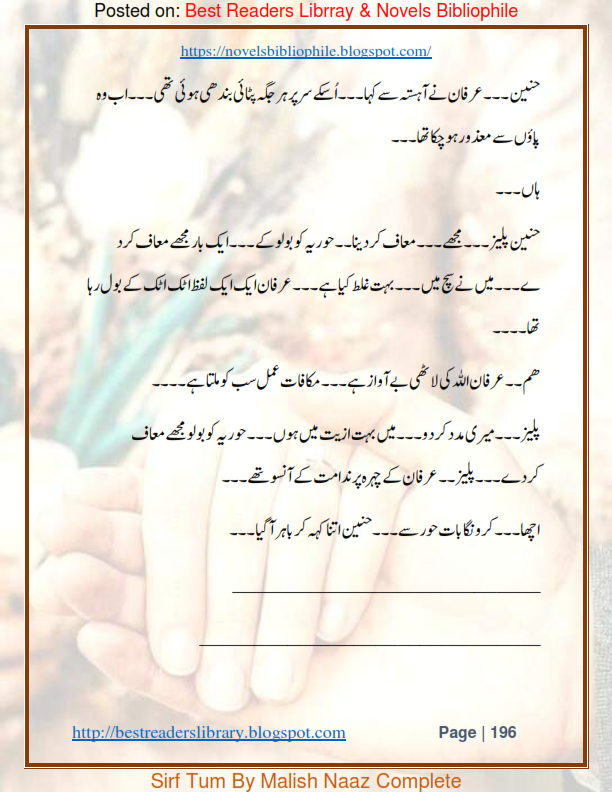 Posted on: Best Readers Librray & Novels Bibliophile
https://novelsbibliophile.blogspot.com/
حنین۔۔۔عرفان نے آہستہ سے کہا۔۔۔اُسکے سر پر ہر جگہ پٹائی بندھی ہوئی تھی۔۔۔اب وہ
پاؤں سے معذور ہو چکا تھا۔۔۔
ہاں۔۔۔
حنین پلیز۔۔۔مجھے۔۔۔معاف کر دینا۔۔حوریہ کو بولو کے۔۔۔ایک بار مجھے معاف کرد
ے۔۔۔میں نے سچ میں۔۔۔بہت غلط کیا ہے۔۔۔عرفان ایک ایک لفظ اٹک اٹک کے بول رہا
تھا۔۔۔۔
ھم۔۔عرفان اللہ کی لاٹھی بے آواز ہے۔۔۔مکافات عمل سب کو ملتا ہے۔۔۔۔
پلیز۔۔۔میری مدد کر دو۔۔۔میں بہت ازیت میں ہوں۔۔۔حوریہ کو بولو مجھے معاف
کر دے۔۔۔پلیز۔۔عرفان کے چہرہ پر ندامت کے آنسو تھے۔۔۔
اچھا۔۔۔کرونگا بات حور سے۔۔۔حنین اتنا کہہ کر باہر آگیا۔۔۔
http://bestreaderslibrary.blogspot.com Page | 196
Sirf Tum By Malish Naaz Complete